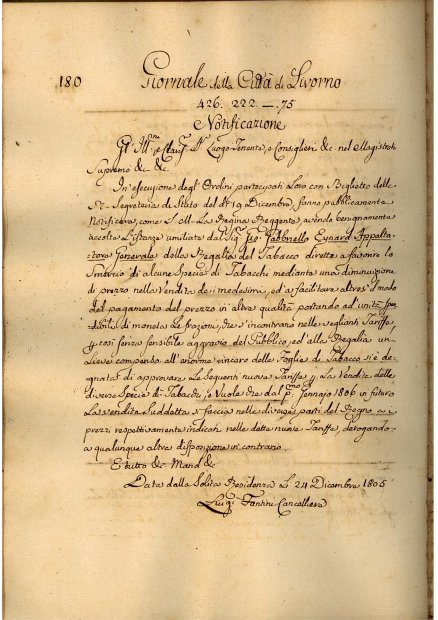 180 Giornale della Città di Livorno
426. 222 — . 75
Notificazione
Gl' Ill.mi e Clariss. Luogo-Tenente, e Consiglieri &c. nel Magistrato
Supremo &c. &c.
In esecuzione degl' Ordini partecipati Loro con Biglietto delle
Segreteria di Stato del dì 19 Dicembre, fanno pubblicamente
Notificare, come S. M. La Regina Reggente, avendo benignamente
accolte L'istanze umiliate dal Sig. Gabbriello Eynard Appalta-
tore Generale della Regalìa del Tabacco dirette a favorire lo
Smercio di alcune Specie di Tabacchi mediante una diminuzione
di prezzo nella Vendita de i medesimi, ed a facilitare altresì il modo
del pagamento del prezzo in altre qualità portando ad unità
di moneta Le frazioni, che s'incontrano nelle veglianti Tariffe,
e così senza sensibile aggravio del Pubblico, ed alla Regalìa un
Lieve compenso all' enorme rincaro delle Foglie di Tabacco si è de-
gnata di approvare Le Seguenti nuove Tariffe p. La Vendita delle
diverse Specie di Tabacchi, e Vuole che dal p.mo Gennajo 1806 in futuro
La vendita suddetta si faccia nelle diverse parti del Regno, a i
prezzi respettivamente indicati nelle dette nuove Tariffe, derogando
a qualunque altra disposizione in contrario.
E tutto &c. Mand. &c.
Data dalla Solita Residenza L. 24 Dicembre 1805
Luigi Fantini Cancelliere